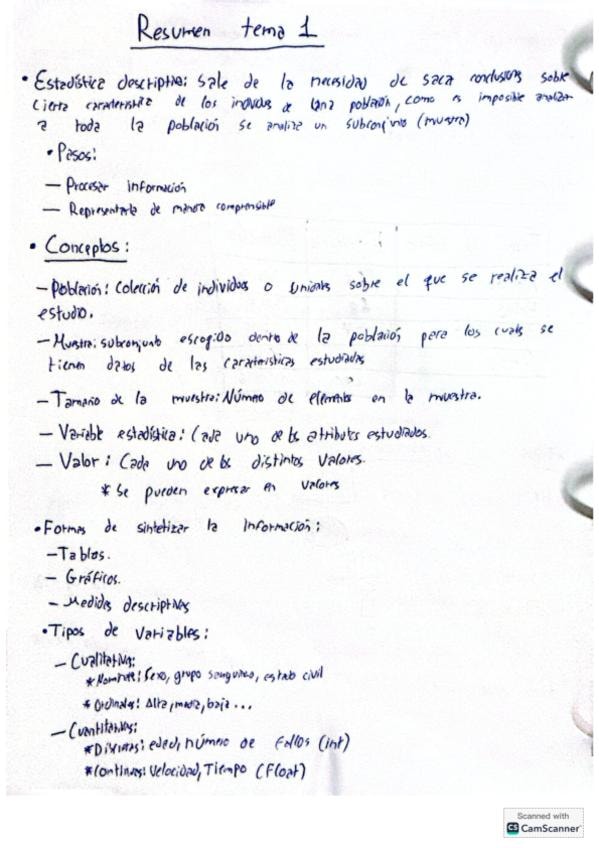 Resumen tema 1
• Estadística descriptiva: Sale de la necesidad de saca conclusiones sobre
cierta característica de los individuos de una población, como es imposible analizar
a toda la población se analiza un subconjunto (muestra)
• Pasos:
— Procesar información
— Representarla de manera comprensible
• Conceptos:
— Población: Colección de individuos o unidades sobre el que se realiza el
estudio.
— Muestra: subconjunto escogido dentro de la población para los cuales se
tienen datos de las características estudiadas
— Tamaño de la muestra: Número de elementos en la muestra.
— Variable estadística: Cada uno de los atributos estudiados.
— Valor: Cada uno de los distintos valores.
* Se pueden expresar en valores
• Formas de sintetizar la información:
— Tablas.
— Gráficos.
— Medidas descriptivas
• Tipos de variables:
— Cualitativas:
* Sexo, grupo sanguineo, estado civil
* Ordinales: Alta, media, baja...
— Cuantitativas:
* Discretas: edad, número de fallos (int)
* Continuas: Velocidad, Tiempo (Float)
Scanned with
CS CamScanner